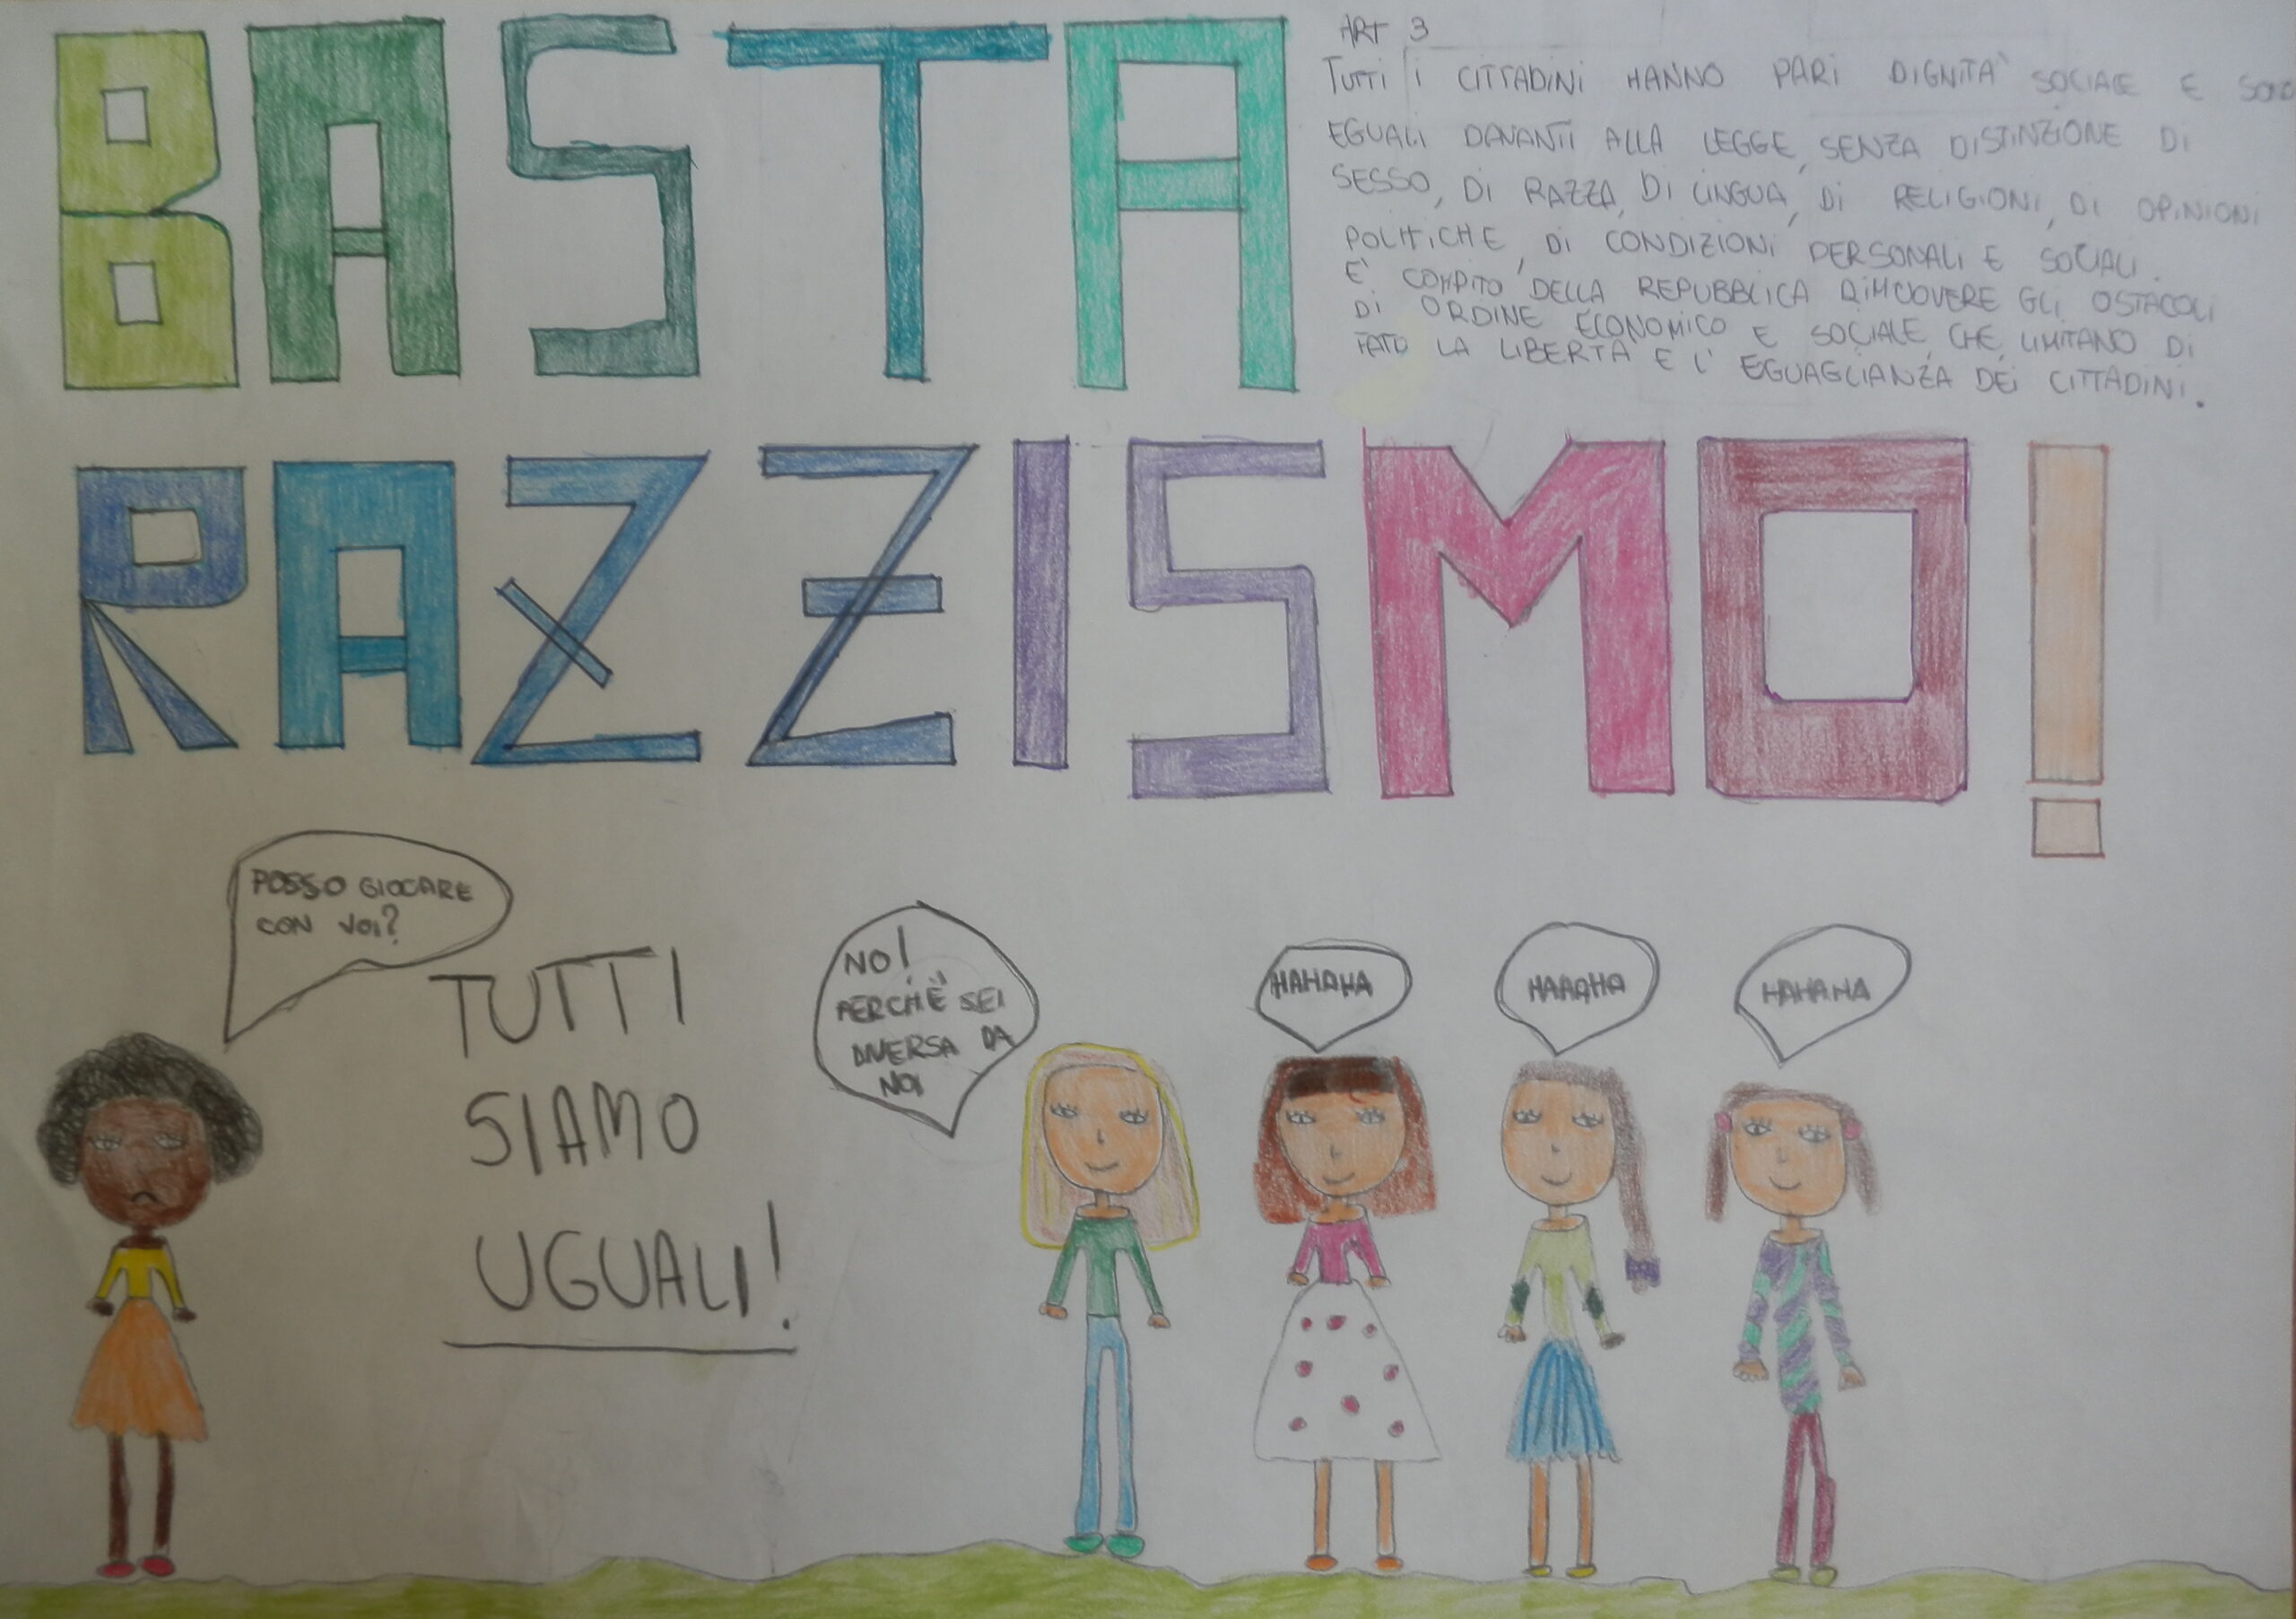 BASTA
ART 3
TUTTI I CITTADINI HANNO PARI DIGNITA' SOCIALE E SONO
EGUALI DAVANTI ALLA LEGGE, SENZA DISTINZIONE DI
SESSO, DI RAZZA, DI LINGUA, DI RELIGIONI, DI OPINIONI
POLITICHE, DI CONDIZIONI PERSONALI E SOCIALI.
E' COMPITO DELLA REPUBBLICA RIMUOVERE GLI OSTACOLI
DI ORDINE ECONOMICO E SOCIALE, CHE, LIMITANO DI
FATTO LA LIBERTÀ E L' EGUAGLIANZA DEI CITTADINI.
RAZZISMO!
POSSO GIOCARE
CON VOI?
TUTTI
SIAMO
UGUALI!
NO!
PERCHÈ SEI
DIVERSA DA
NOI
HAHAHA
HAAAHA
HAHAHA